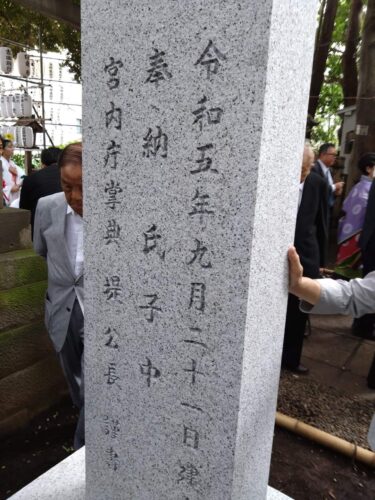 令和五年九月二十一日建
奉納氏子中
宮内庁掌典堤公長謹書